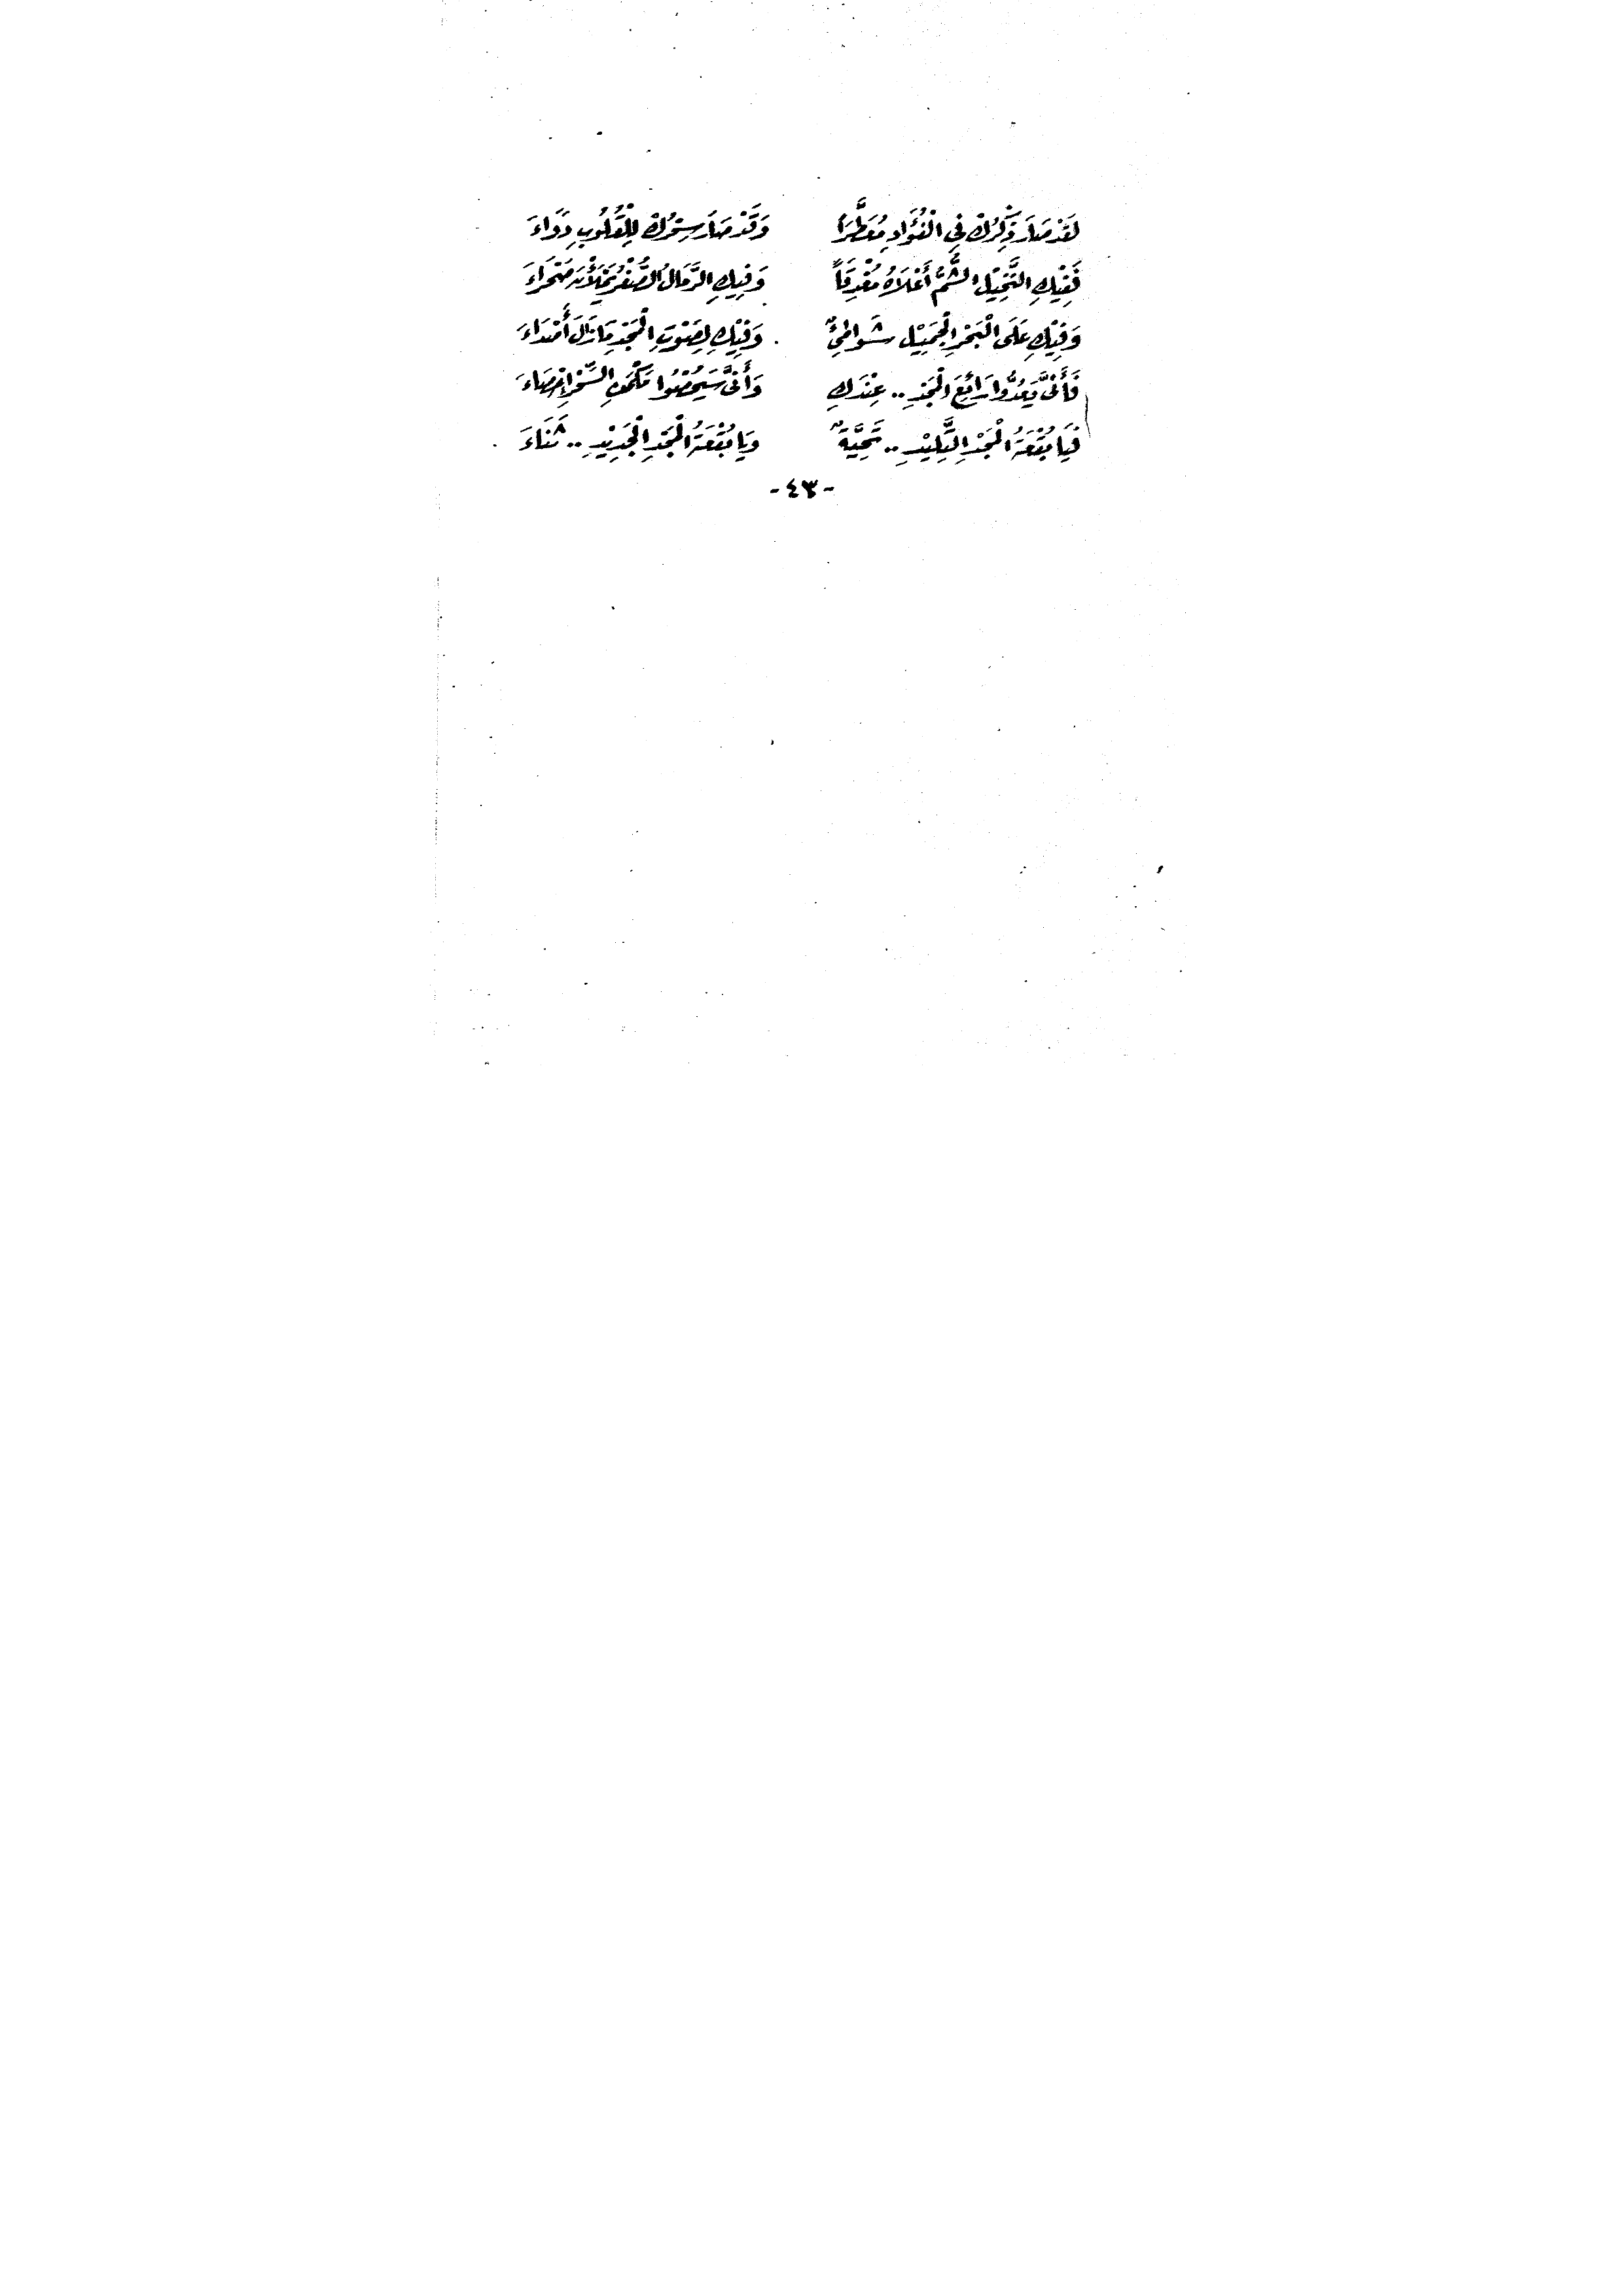 لَقَدْ صَارَ ذِكْرُكْ فِي الْفُؤَادِ مُعَطَّرَاً وَقَدْ صَارَ سِحْرُكْ لِلْقُلُوبِ دَوَاءَ
فَفِيْكِ النَّخِيْلِ الشُّمُّ أَعْلَاهُ مُغْدِقَاً وَفِيكِ الرِّمَالُ الصُّفْرُ يَمْلَأْنَ صَحْرَاءَ
وَفِيْكِ عَلَى الْبَحْرِ الْجَمِيْلِ شَوَاطِئٌ وَفِيْكِ لِصَوْتِ الْمَجْدِ مَا زَالَ أَصْدَاءَ
فَأَنَّى يَعُدُّوا رَائِعَ الْمَجْدِ .. عِنْدَكِ وَأَنَّى سَيُحْصُوا مَكْمَنِ السِّحْرِ إِحْصَاءَ
فَيَا بُقْعَةَ الْمَجْدِ التَّلِيْدِ .. تَحِيَّةٌ وَيَا بُقْعَةَ الْمَجْدِ الْجَدِيْدِ .. ثَنَاءَ
- ٤٣ -